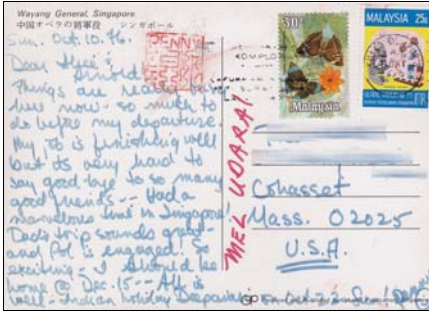 Wayang General, Singapore.
中国オペラの将軍役 シンガポール
Sun. Oct. 10. 76.
Dear Alice &
Arnold
Things are really
here now - so much to
do before my departure.
My job is finishing well
but its very hard to
say good-bye to so many
good friends -- Had a
marvelous time in Singapore!
Dad's trip sounds great -
and Pol is engaged! So
exciting - I should be
home @ Dec. 15 -- All is
well - Indian holiday Deepavali on Oct 22
JENNY
30¢
Malaysia
MALAYSIA 25¢
MEL UDARA!
Cohasset
Mass. 02025
U.S.A.